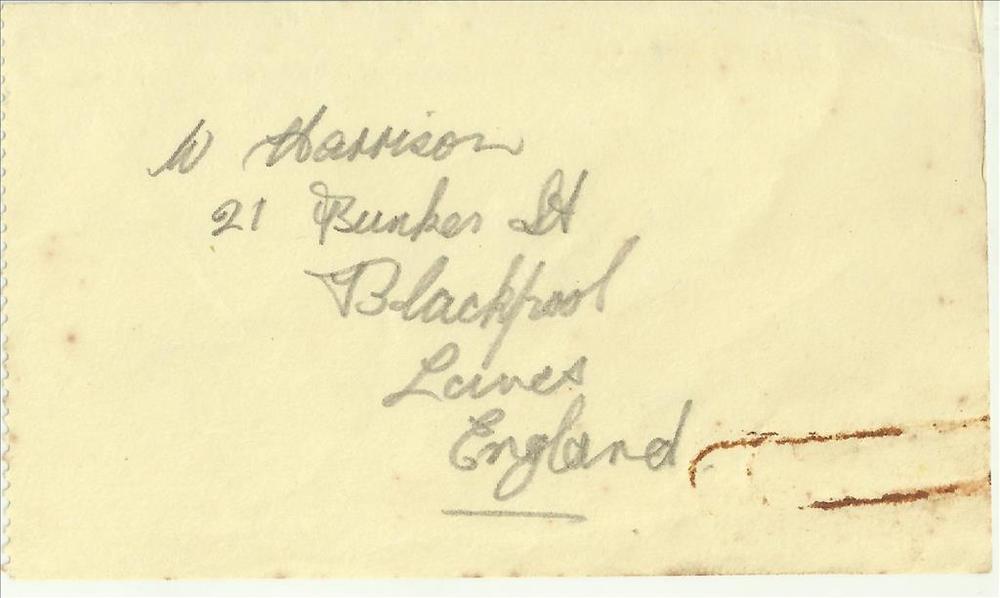 W Harrison
21 Bunker St
Blackpool
Lancs
England